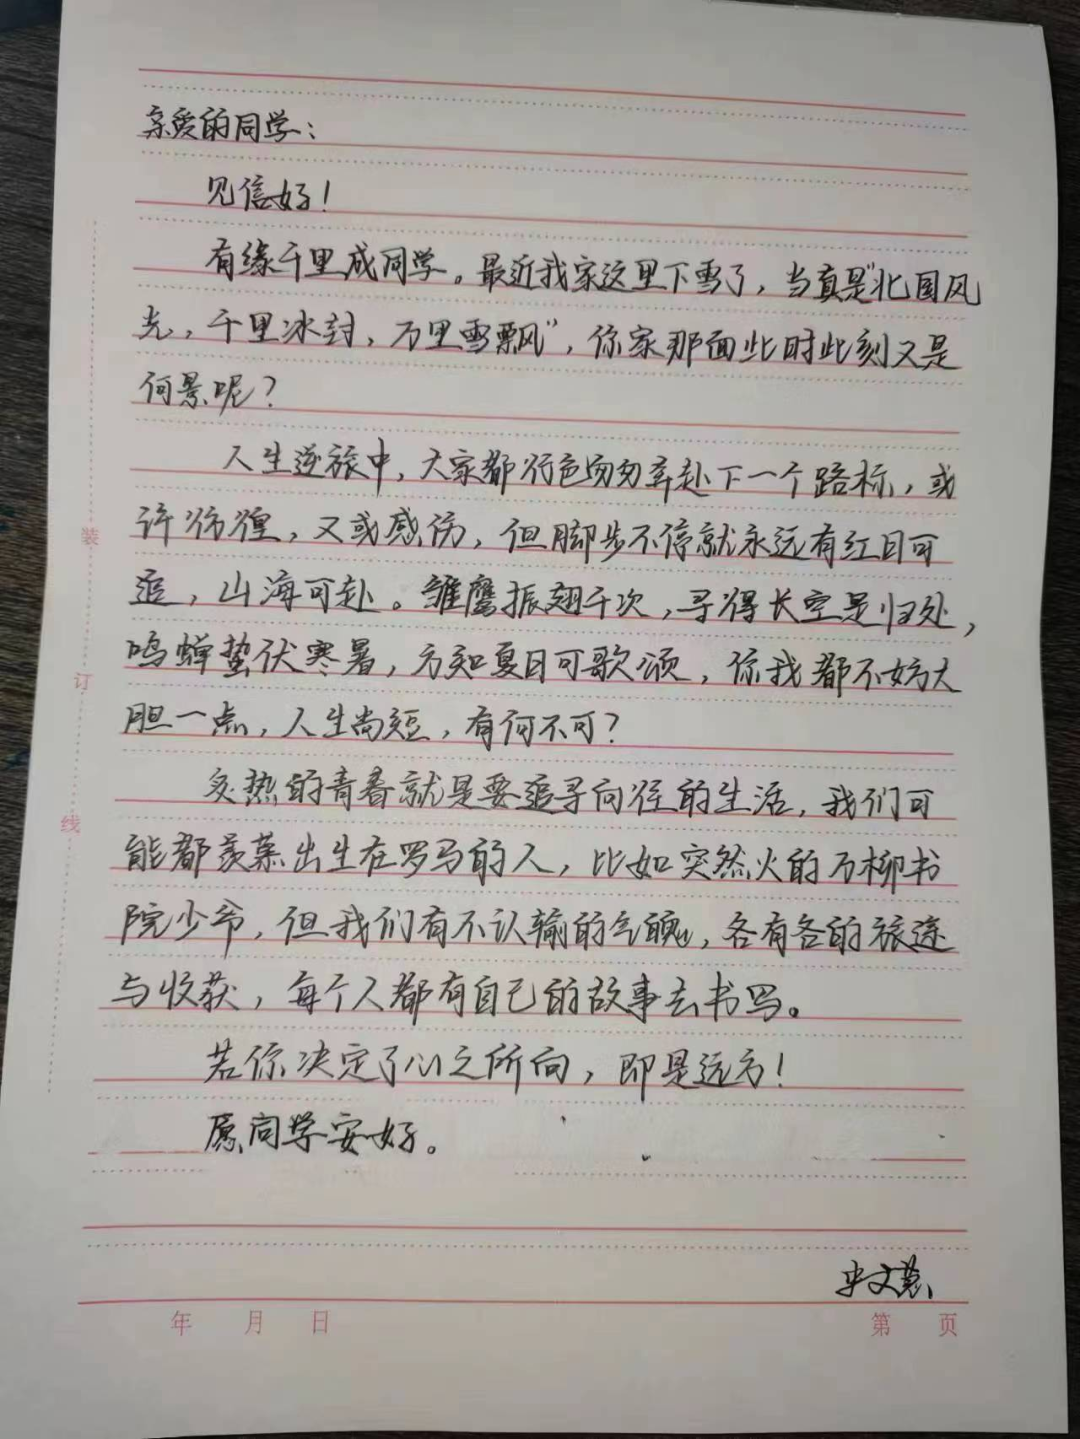 亲爱的同学：
见信好！
有缘千里成同学。最近我家这里下雪了，当真是“北国风
光，千里冰封，万里雪飘”，你家那面此时此刻又是
何景呢？
人生逆旅中，大家都行色匆匆奔赴下一个路标，或
许彷徨，又或感伤，但脚步不停就永远有红日可
追，山海可赴。雏鹰振翅千次，寻得长空是归处，
鸣蝉蛰伏寒暑，方知夏日可歌颂，你我都不妨大
胆一点，人生尚短，有何不可？
炙热的青春就是要追寻向往的生活，我们可
能都羡慕出生在罗马的人，比如突然火的万柳书
院少爷，但我们有不认输的气魄，各有各的旅途
与收获，每个人都有自己的故事去书写。
若你决定了心之所向，即是远方！
愿同学安好。
史文慧
装
订
线
年 月 日
第 页